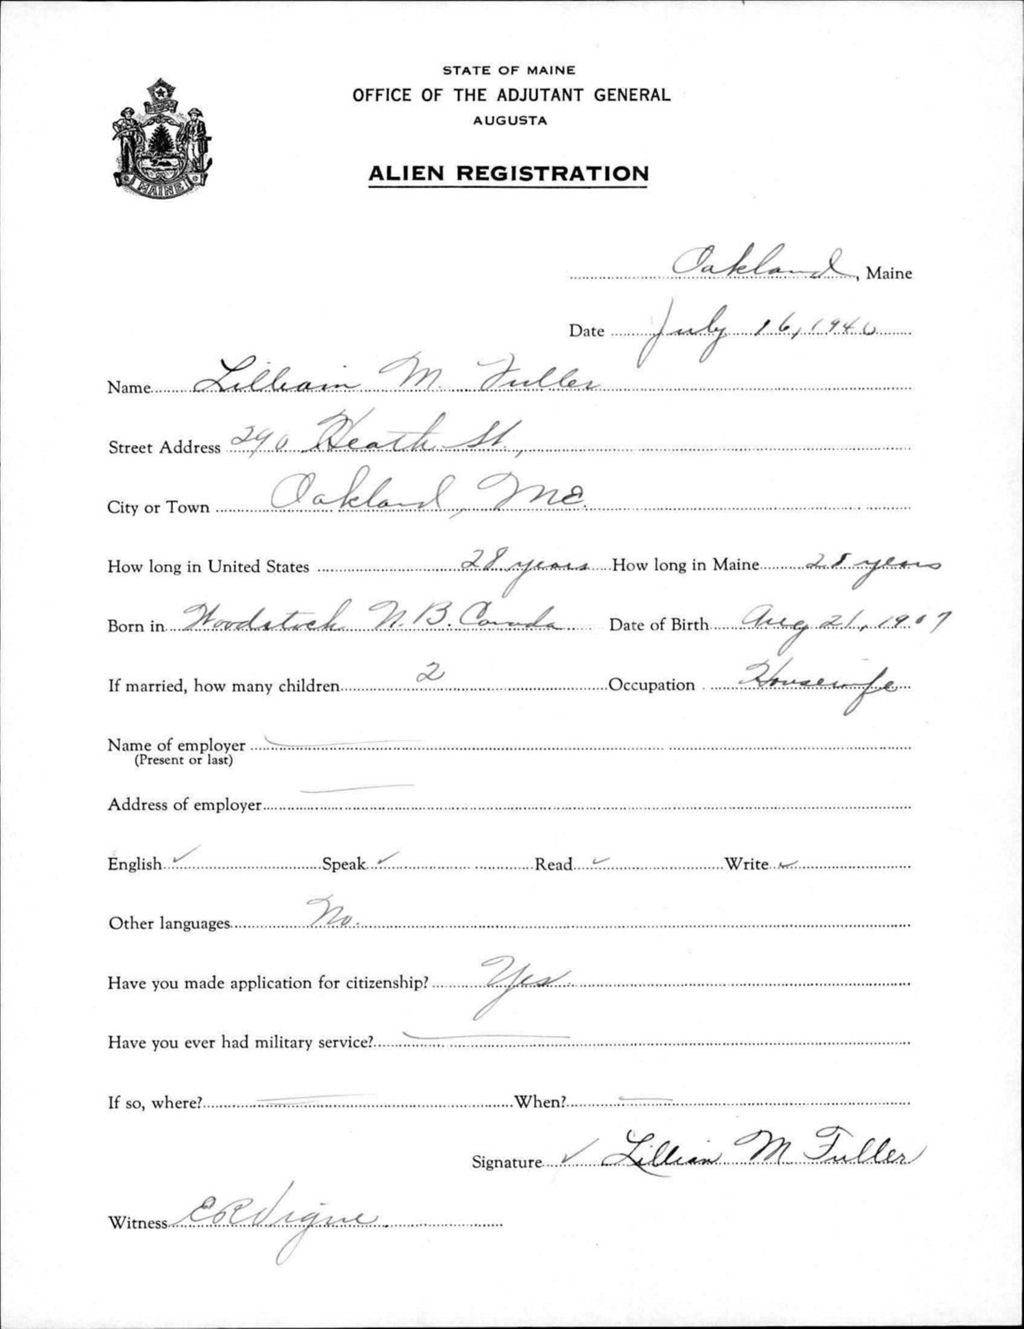 STATE OF MAINE
OFFICE OF THE ADJUTANT GENERAL
AUGUSTA
ALIEN REGISTRATION
MAINE
Oakland, Maine
Date July 16, 1940
Name Lilliam M. Fuller
Street Address 290 Heath St.,
City or Town Oakland, Me.
How long in United States 28 years How long in Maine 28 years
Born in Woodstock N.B. Canada Date of Birth Aug 21, 1907
If married, how many children 2 Occupation Housewife
Name of employer —
(Present or last)
Address of employer —
English ✓ Speak ✓ Read ✓ Write ✓
Other languages No.
Have you made application for citizenship? Yes.
Have you ever had military service? —
If so, where? — When? —
Signature ✓ Lillian M Fuller
Witness E R Vigue